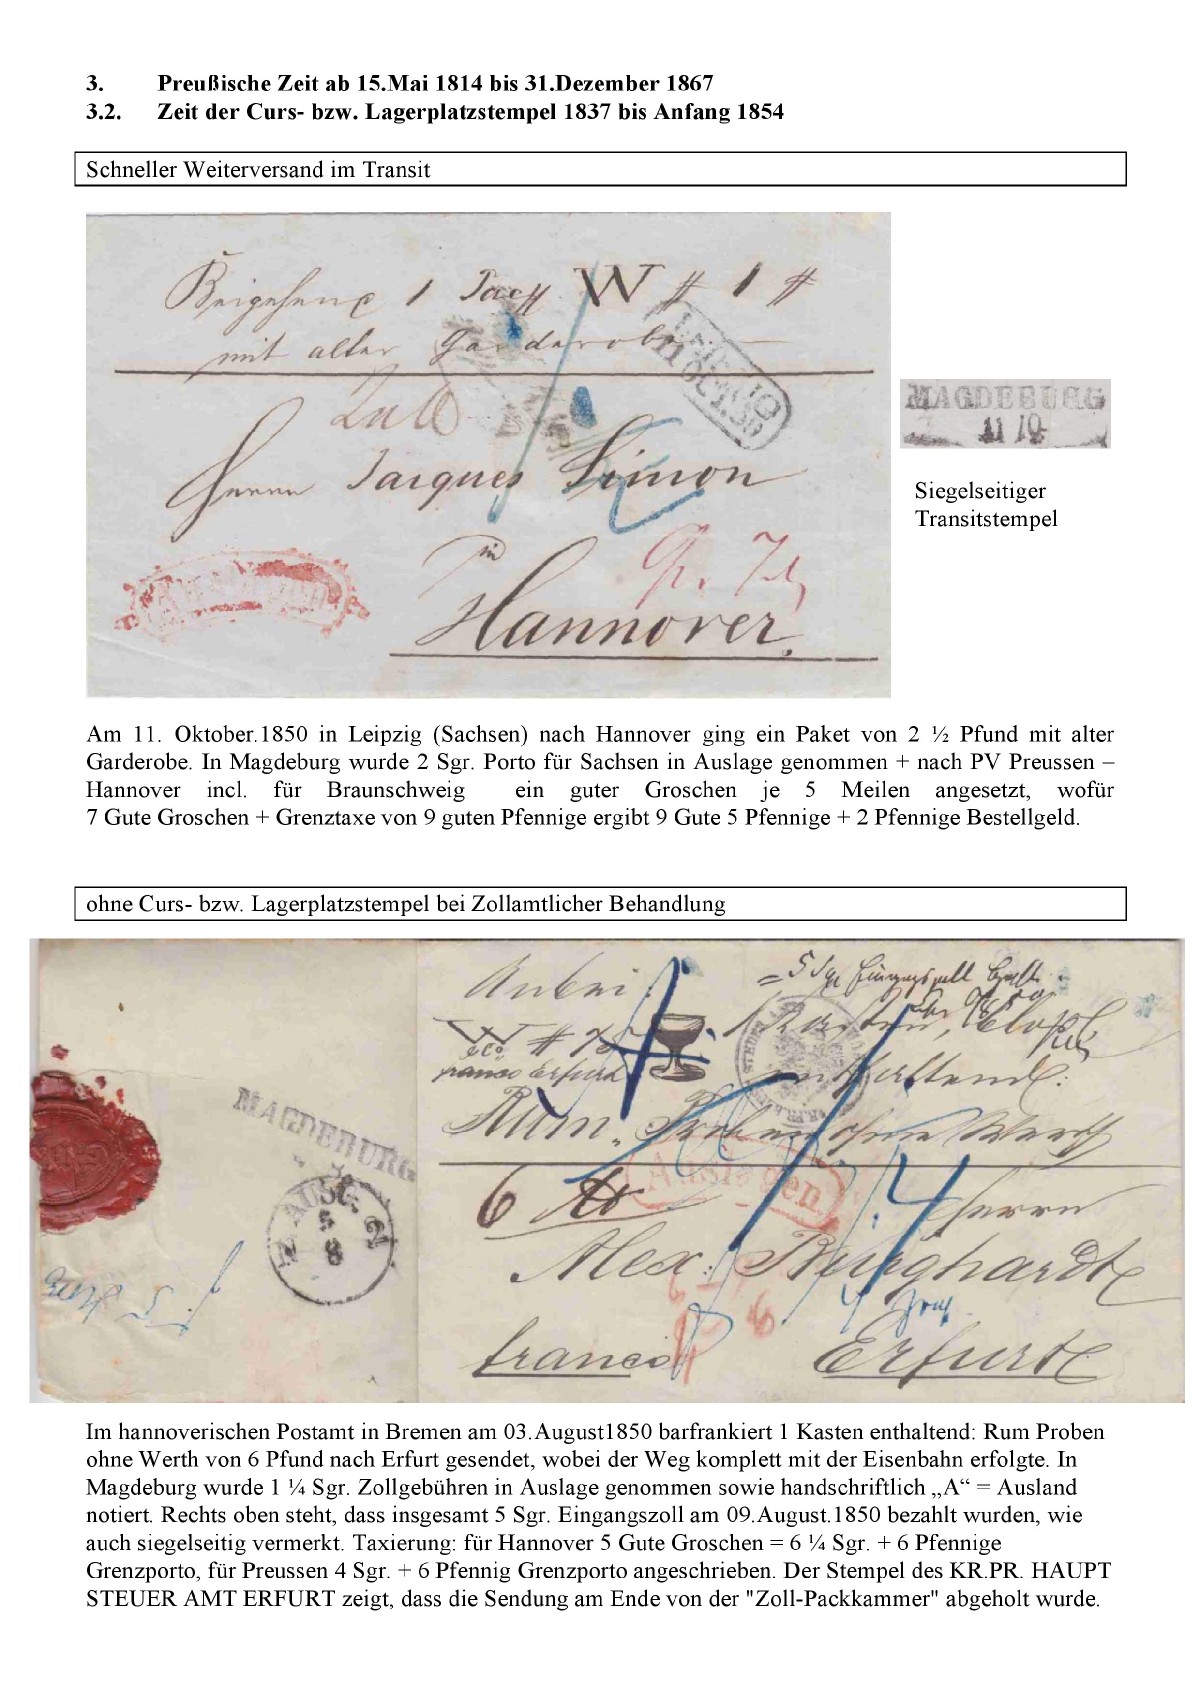 3. Preußische Zeit ab 15.Mai 1814 bis 31.Dezember 1867
3.2. Zeit der Curs- bzw. Lagerplatzstempel 1837 bis Anfang 1854
Schneller Weiterversand im Transit
1 W # 1 #
mit alter Garderobe
LEIPZIG
11 OCT. 50
Herrn Jacques Simon
in
Hannover.
MAGDEBURG
11 10
Siegelseitiger
Transitstempel
Am 11. Oktober.1850 in Leipzig (Sachsen) nach Hannover ging ein Paket von 2 ½ Pfund mit alter
Garderobe. In Magdeburg wurde 2 Sgr. Porto für Sachsen in Auslage genommen + nach PV Preussen –
Hannover incl. für Braunschweig ein guter Groschen je 5 Meilen angesetzt, wofür
7 Gute Groschen + Grenztaxe von 9 guten Pfennige ergibt 9 Gute 5 Pfennige + 2 Pfennige Bestellgeld.
ohne Curs- bzw. Lagerplatzstempel bei Zollamtlicher Behandlung
MAGDEBURG
AUSG.
5
8
N 2
Anbei
W #
franco Erfurt
Rum Proben ohne Werth
Auslagen.
6
Herrn
Alex. Burghardt
franco Erfurt
Im hannoverischen Postamt in Bremen am 03.August1850 barfrankiert 1 Kasten enthaltend: Rum Proben
ohne Werth von 6 Pfund nach Erfurt gesendet, wobei der Weg komplett mit der Eisenbahn erfolgte. In
Magdeburg wurde 1 ¼ Sgr. Zollgebühren in Auslage genommen sowie handschriftlich „A“ = Ausland
notiert. Rechts oben steht, dass insgesamt 5 Sgr. Eingangszoll am 09.August.1850 bezahlt wurden, wie
auch siegelseitig vermerkt. Taxierung: für Hannover 5 Gute Groschen = 6 ¼ Sgr. + 6 Pfennige
Grenzporto, für Preussen 4 Sgr. + 6 Pfennig Grenzporto angeschrieben. Der Stempel des KR.PR. HAUPT
STEUER AMT ERFURT zeigt, dass die Sendung am Ende von der "Zoll-Packkammer" abgeholt wurde.